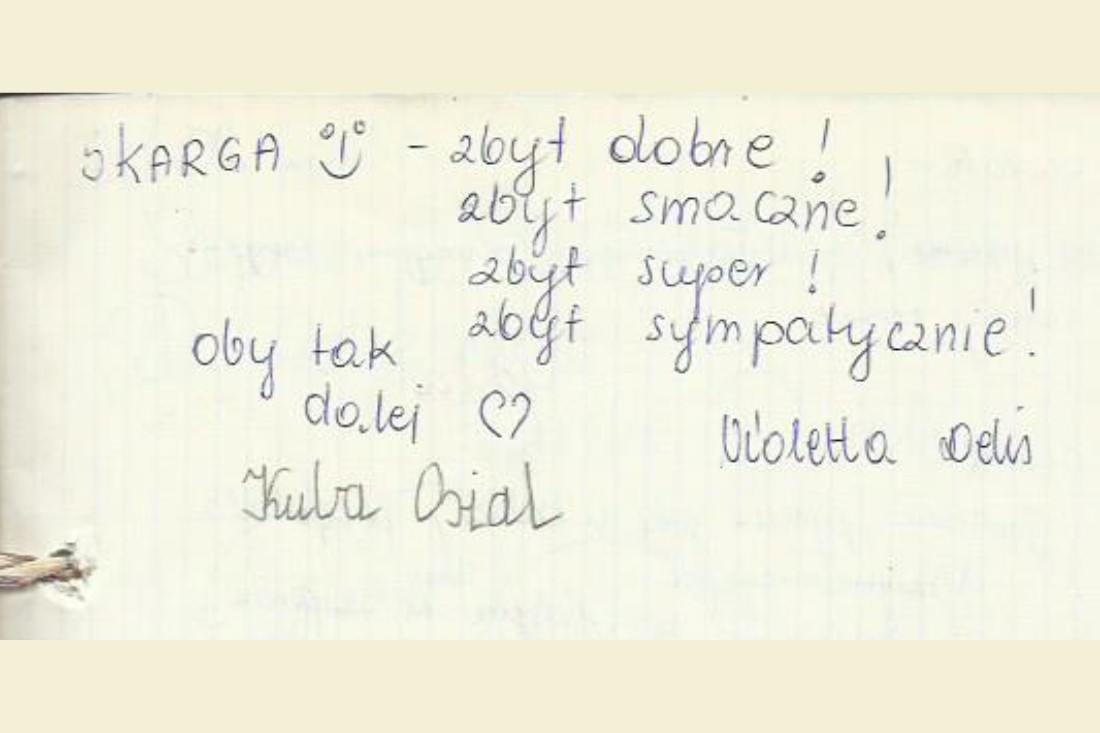 SKARGA - zbyt dobre!
zbyt smaczne!
zbyt super!
zbyt sympatycznie!
oby tak
dalej ♡
Violetta Delis
Kuba